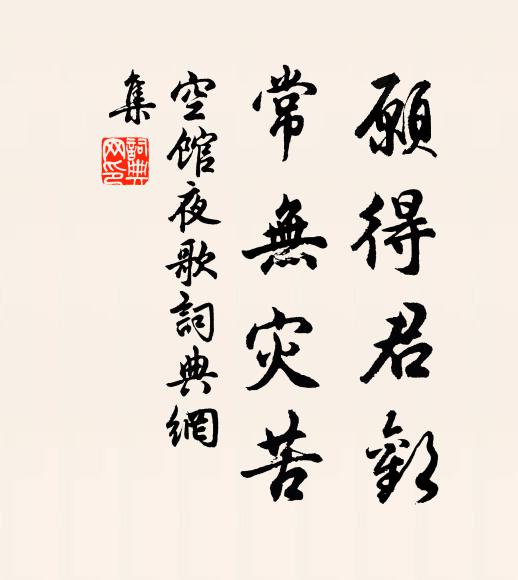 願得君歡
常無灾苦
空館夜歌詞典網
集
詞典
网印